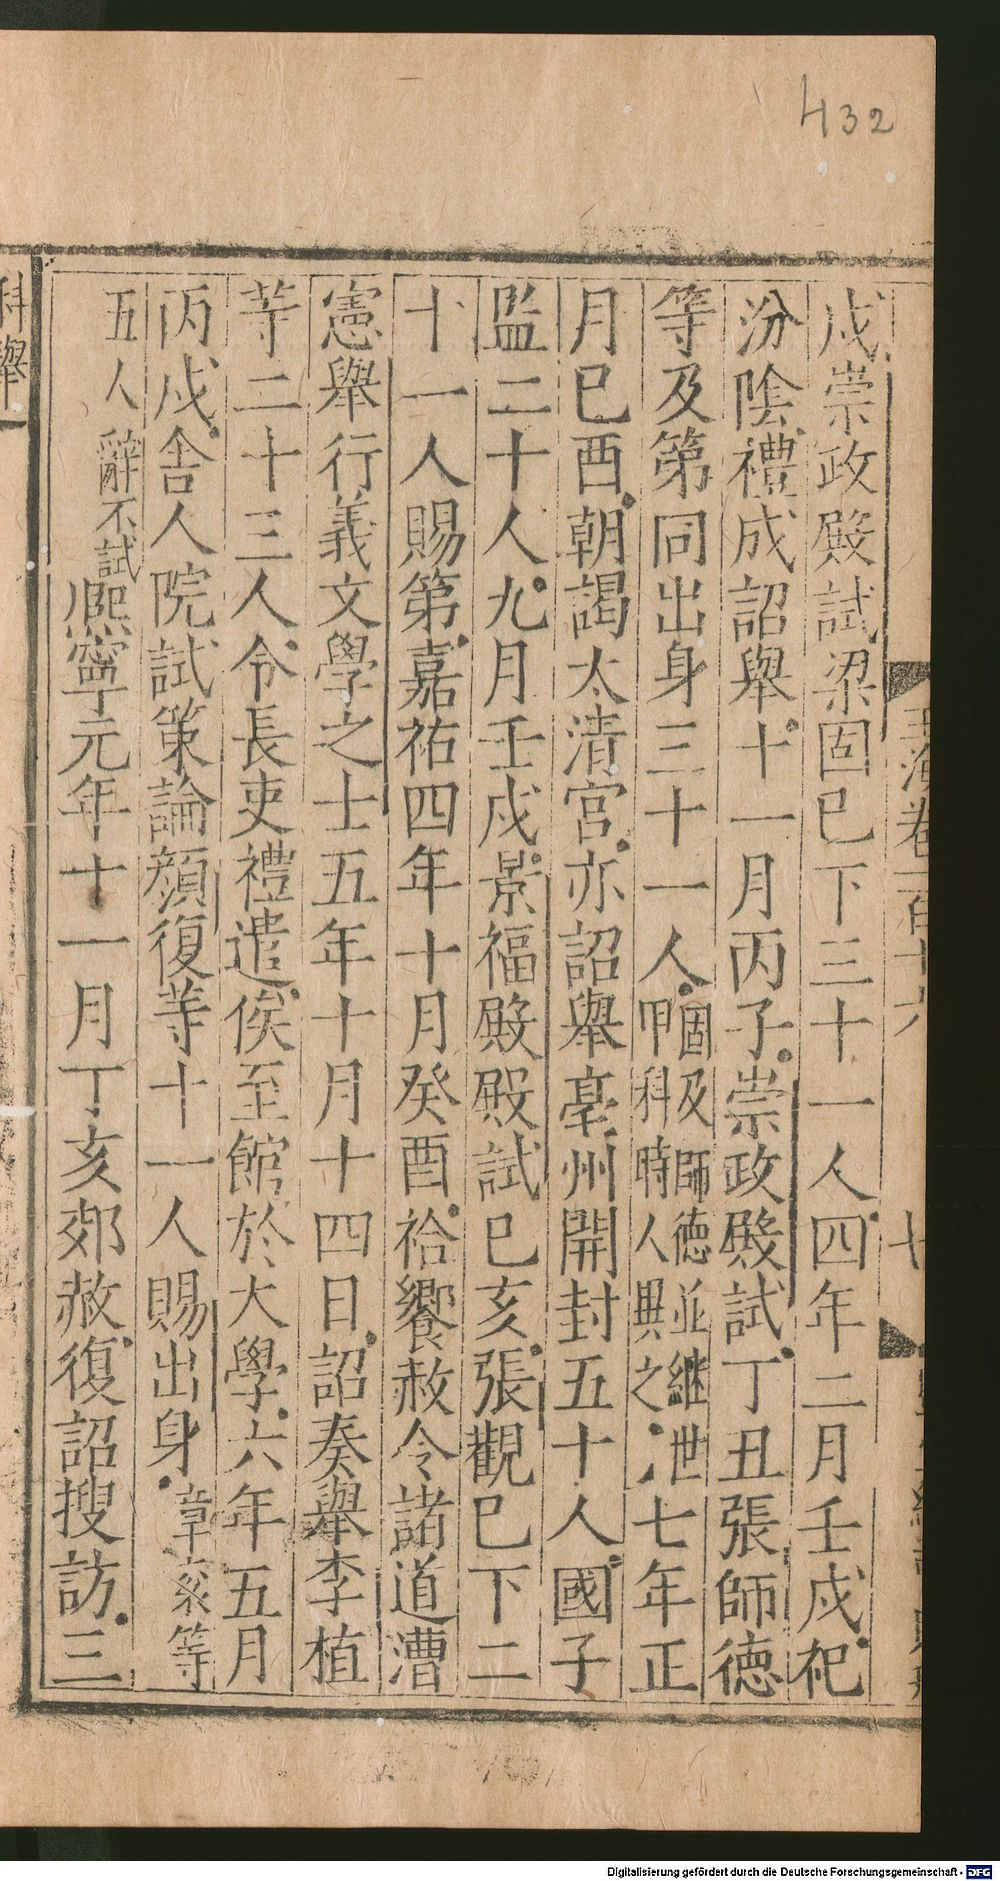 432
戍崇政殿試梁固已下三十一人四年二月壬戍祀
汾陰禮成詔舉十一月丙子崇政殿試丁丑張師德
等及第同出身三十一人固及師德並繼世甲科時人異之七年正
月巳酉朝謁太清宮亦詔舉亳州開封五十人國子
監二十人九月壬戍景福殿殿試巳亥張觀巳下二
十一人賜第嘉祐四年十月癸酉祫饗赦令諸道漕
憲舉行義文學之士五年十月十四日詔奏舉李植
等二十三人令長吏禮遣俟至館於大學六年五月
丙戍舍人院試策論顏復等十一人賜出身章粢等
五人辭不試熈寧元年十一月丁亥郊赦復詔搜訪三
科舉
玉海卷一百十六
七
Digitalisierung gefördert durch die Deutsche Forschungsgemeinschaft - DFG